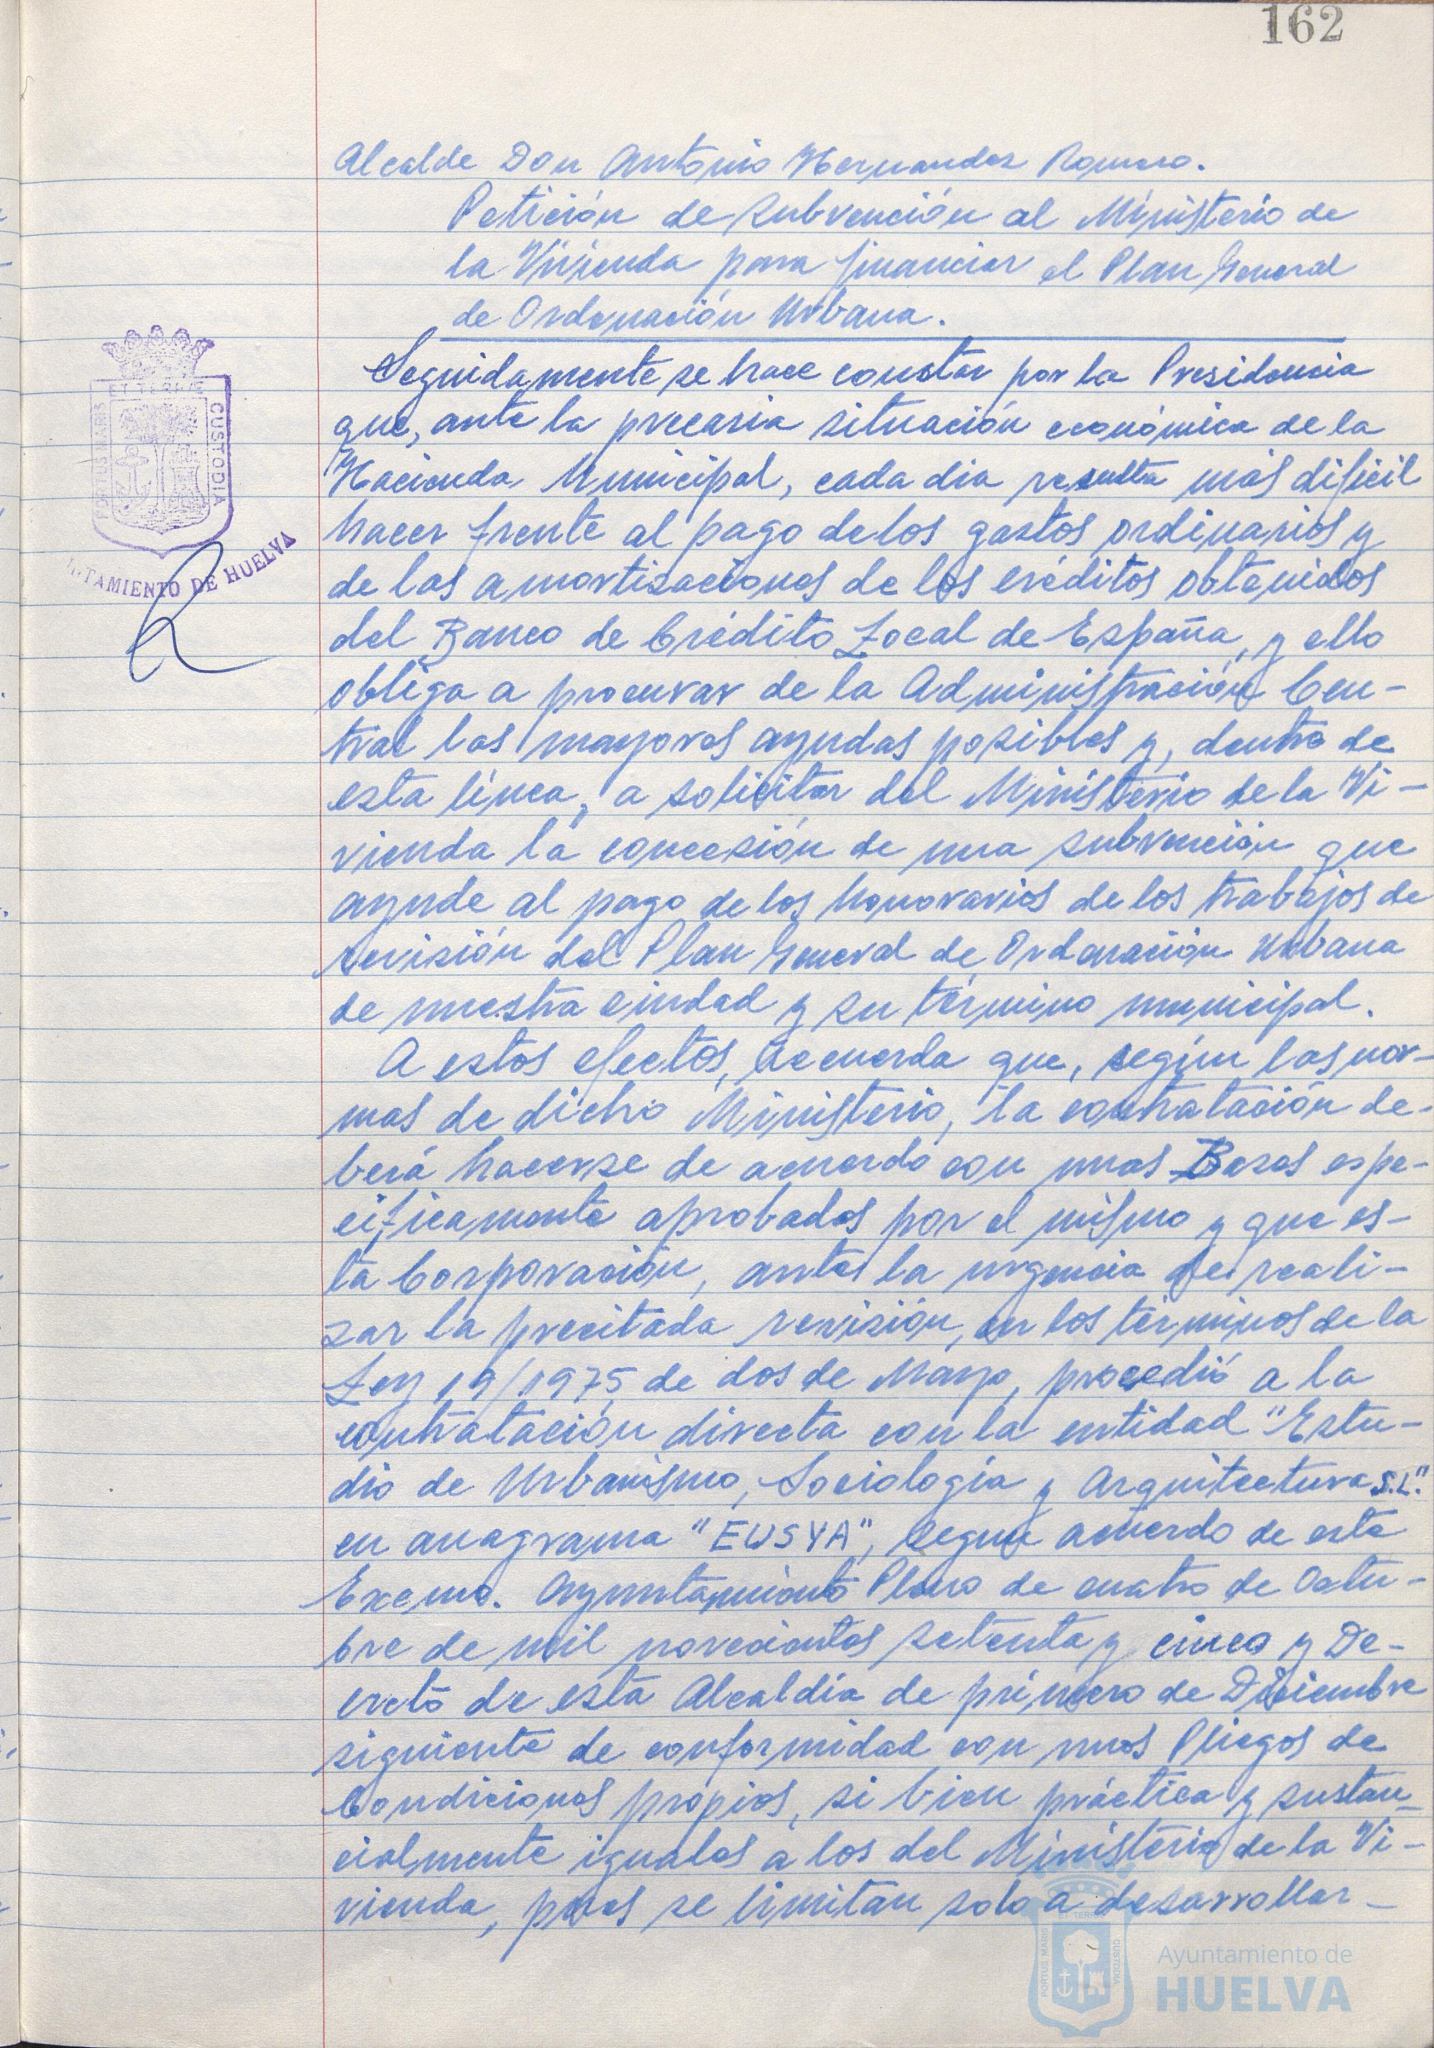 162
Alcalde Don Antonio Hernandez Romero.
Petición de subvención al Ministerio de
la Vivienda para financiar el Plan General
de Ordenación Urbana.
Seguidamente se hace constar por la Presidencia
que, ante la precaria situación económica de la
Hacienda Municipal, cada dia resulta más dificil
hacer frente al pago de los gastos ordinarios y
de las amortizaciones de los créditos obtenidos
del Banco de Crédito Local de España, y ello
obliga a procurar de la Administración Cen-
tral las mayores ayudas posibles y, dentro de
esta línea, a solicitar del Ministerio de la Vi-
vienda la concesión de una subvención que
ayude al pago de los honorarios de los trabajos de
revisión del Plan General de Ordenación Urbana
de nuestra ciudad y su término municipal.
A estos efectos, acuerda que, según las nor-
mas de dicho Ministerio, la contratación de-
berá hacerse de acuerdo con unas Bases espe-
cíficamente aprobadas por el mismo y que es-
ta Corporación, ante la urgencia de reali-
zar la precitada revisión, en los términos de la
Ley 19/1975, de dos de Mayo, procedió a la
contratación directa con la entidad "Estu-
dio de Urbanismo, Sociología y Arquitectura S.L."
en anagrama "EUSYA", según acuerdo de este
Excmo. Ayuntamiento Pleno de cuatro de Octu-
bre de mil novecientos setenta y cinco y De-
creto de esta Alcaldía de primero de Diciembre
siguiente de conformidad con unos Pliegos de
Condiciones propios, si bien práctica y sustan-
cialmente iguales a los del Ministerio de la Vi-
vienda, pues se limitan solo a desarrollar-
PORTUS MARIS
ET TERRE
CUSTODIA
NTAMIENTO DE HUELVA
PORTUS MARIS
ET TERRE
CUSTODIA
Ayuntamiento de
HUELVA